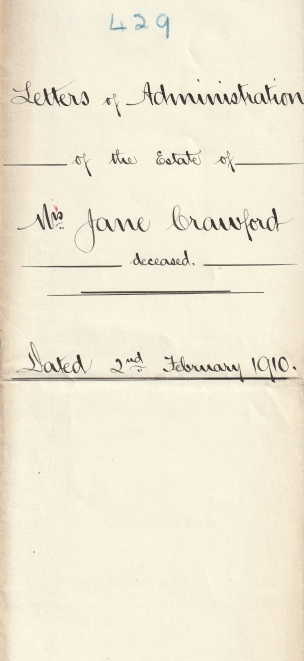 429
Letters of Administration
of the Estate of
Mrs Jane Crawford
deceased.
Dated 2nd February 1910.